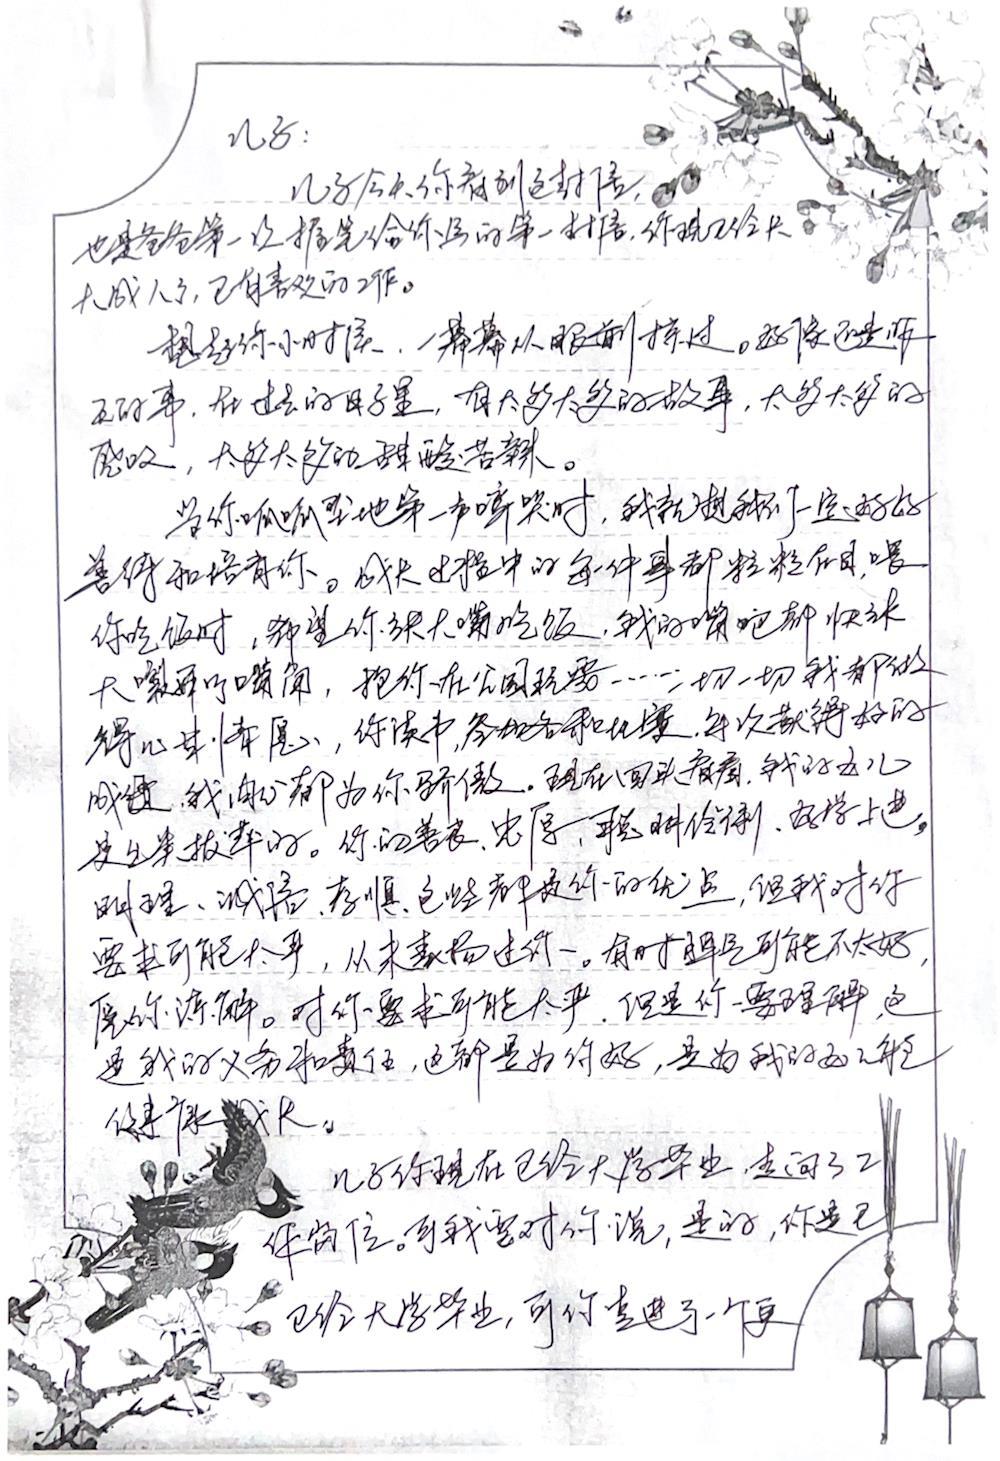 儿子：
儿子今天你看到这封信，
也是爸爸第一次握笔给你写的第一封信，你现已经长
大成人了，已有喜欢的工作。
想起你小时候，一幕幕从眼前掠过。好像还是昨
天的事，在过去的日子里，有太多太多的故事，太多太多的
感叹，太多太多的甜酸苦辣。
当你呱呱坠地第一声啼哭时，我就想我们一定好好
善待和培育你。成长过程中的每一件事都粒粒在目，喂
你吃饭时，希望你张大嘴吃饭，我的嘴吧都快张
大嘴，抱你在公园玩耍……一切一切我都做
得心甘情愿，你读书，参加各种比赛，每次获得好的
成绩，我内心都为你骄傲。现在回头看看，我的女儿
是出类拔萃的。你的善良、忠厚，聪明伶俐、好学上进。
明理、诚信、孝顺，这些都是你的优点，但我对你
要求可能太严，从来表扬过你。有时脾气可能不太好，
愿你谅解。对你要求可能太严，但是你要理解，这
是我的义务和责任，这都是为你好，是为我的女儿能
健康成长。
儿子你现在已经大学毕业，走向了工
作岗位。可我要对你说，是的，你是已
已经大学毕业，可你走进了一个更